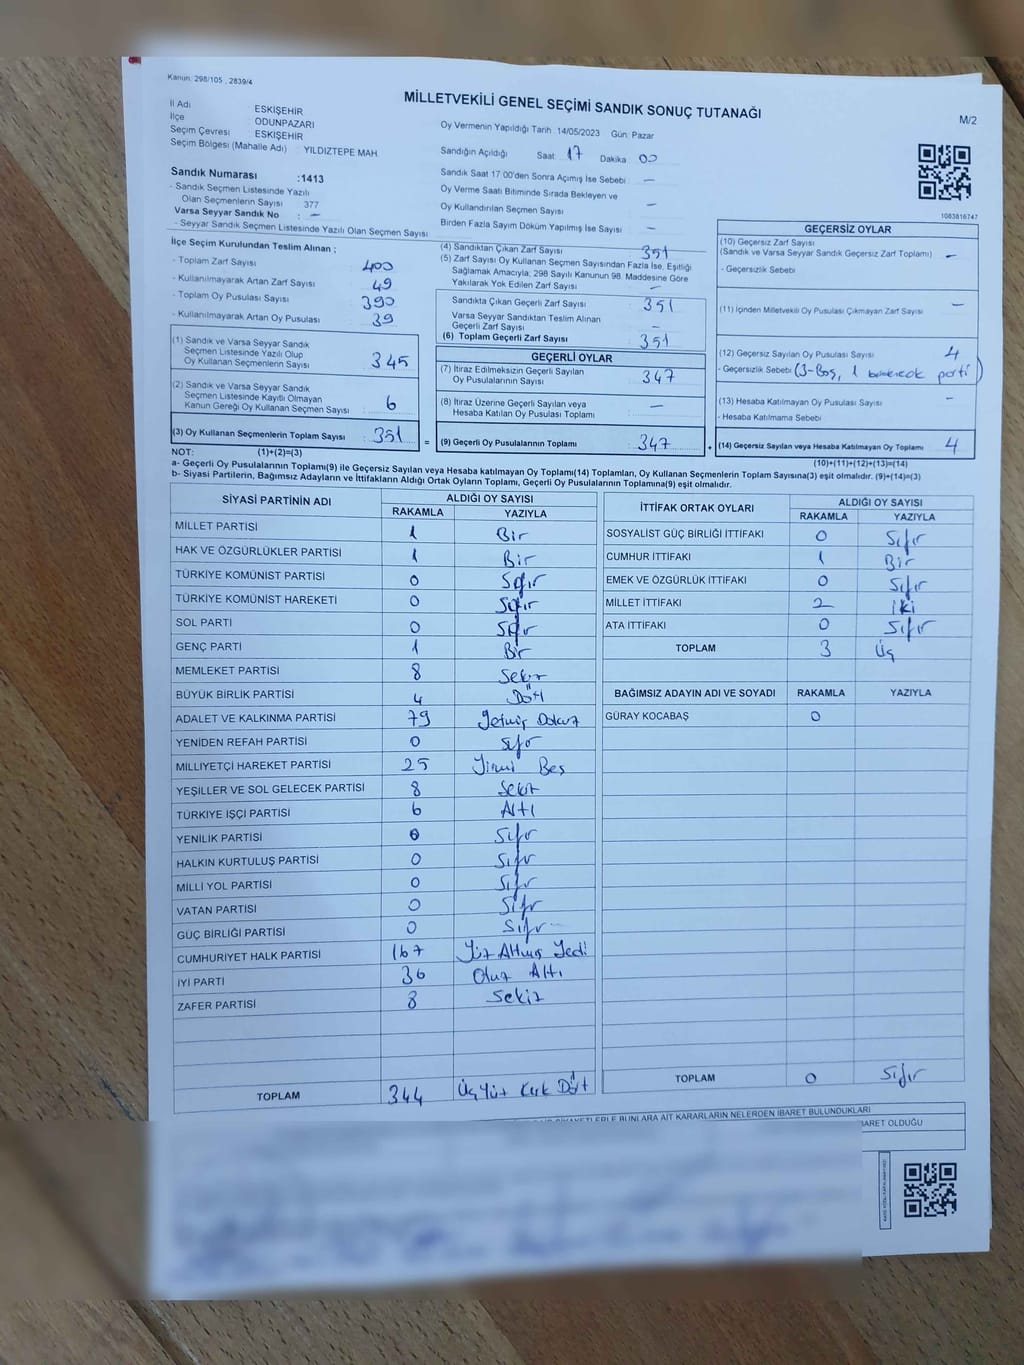 Kanun: 298/105 , 2839/4
MİLLETVEKİLİ GENEL SEÇİMİ SANDIK SONUÇ TUTANAĞI
M/2
İl Adı ESKİŞEHİR
İlçe ODUNPAZARI
Seçim Çevresi ESKİŞEHİR
Seçim Bölgesi (Mahalle Adı) YILDIZTEPE MAH.
Oy Vermenin Yapıldığı Tarih :14/05/2023 Gün: Pazar
Sandığın Açıldığı Saat 17 Dakika 00
Sandık Saat 17:00'den Sonra Açımış İse Sebebi —
Oy Verme Saati Bitiminde Sırada Bekleyen ve
Oy Kullandırılan Seçmen Sayısı —
Birden Fazla Sayım Döküm Yapılmış İse Sayısı —
1083816747
Sandık Numarası :1413
- Sandık Seçmen Listesinde Yazılı
Olan Seçmenlerin Sayısı 377
Varsa Seyyar Sandık No : —
- Seyyar Sandık Seçmen Listesinde Yazılı Olan Seçmen Sayısı
İlçe Seçim Kurulundan Teslim Alınan ;
- Toplam Zarf Sayısı 400
- Kullanılmayarak Artan Zarf Sayısı 49
- Toplam Oy Pusulası Sayısı 390
- Kullanılmayarak Artan Oy Pusulası 39
(1) Sandık ve Varsa Seyyar Sandık
Seçmen Listesinde Yazılı Olup
Oy Kullanan Seçmenlerin Sayısı 345
(2) Sandık ve Varsa Seyyar Sandık
Seçmen Listesinde Kayıtlı Olmayan
Kanun Gereği Oy Kullanan Seçmen Sayısı 6
(3) Oy Kullanan Seçmenlerin Toplam Sayısı : 351
(4) Sandıktan Çıkan Zarf Sayısı 351
(5) Zarf Sayısı Oy Kullanan Seçmen Sayısından Fazla İse, Eşitliği
Sağlamak Amacıyla, 298 Sayılı Kanunun 98. Maddesine Göre
Yakılarak Yok Edilen Zarf Sayısı —
Sandıkta Çıkan Geçerli Zarf Sayısı 351
Varsa Seyyar Sandıktan Teslim Alınan
Geçerli Zarf Sayısı —
(6) Toplam Geçerli Zarf Sayısı 351
GEÇERLİ OYLAR
(7) İtiraz Edilmeksizin Geçerli Sayılan
Oy Pusulalarının Sayısı 347
(8) İtiraz Üzerine Geçerli Sayılan veya
Hesaba Katılan Oy Pusulası Toplamı —
= (9) Geçerli Oy Pusulalarının Toplamı : 347
GEÇERSİZ OYLAR
(10) Geçersiz Zarf Sayısı
(Sandık ve Varsa Seyyar Sandık Geçersiz Zarf Toplamı) —
- Geçersizlik Sebebi
(11) İçinden Milletvekili Oy Pusulası Çıkmayan Zarf Sayısı —
(12) Geçersiz Sayılan Oy Pusulası Sayısı 4
- Geçersizlik Sebebi (3-Boş, 1 parti)
(13) Hesaba Katılmayan Oy Pusulası Sayısı -
- Hesaba Katılmama Sebebi
+ (14) Geçersiz Sayılan veya Hesaba Katılmayan Oy Toplamı 4
NOT: (1)+(2)=(3)
(10)+(11)+(12)+(13)=(14)
a- Geçerli Oy Pusulalarının Toplamı(9) ile Geçersiz Sayılan veya Hesaba katılmayan Oy Toplamı(14) Toplamları, Oy Kullanan Seçmenlerin Toplam Sayısına(3) eşit olmalıdır. (9)+(14)=(3)
b- Siyasi Partilerin, Bağımsız Adayların ve İttifakların Aldığı Ortak Oyların Toplamı, Geçerli Oy Pusulalarının Toplamına(9) eşit olmalıdır.
SİYASİ PARTİNİN ADI ALDIĞI OY SAYISI
RAKAMLA YAZIYLA
MİLLET PARTİSİ 1 Bir
HAK VE ÖZGÜRLÜKLER PARTİSİ 1 Bir
TÜRKİYE KOMÜNİST PARTİSİ 0 Sıfır
TÜRKİYE KOMÜNİST HAREKETİ 0 Sıfır
SOL PARTİ 0 Sıfır
GENÇ PARTİ 1 Bir
MEMLEKET PARTİSİ 8 Sekiz
BÜYÜK BİRLİK PARTİSİ 4 Dört
ADALET VE KALKINMA PARTİSİ 79 Yetmiş Dokuz
YENİDEN REFAH PARTİSİ 0 Sıfır
MİLLİYETÇİ HAREKET PARTİSİ 25 Yirmi Beş
YEŞİLLER VE SOL GELECEK PARTİSİ 8 Sekiz
TÜRKİYE İŞÇİ PARTİSİ 6 Altı
YENİLİK PARTİSİ 0 Sıfır
HALKIN KURTULUŞ PARTİSİ 0 Sıfır
MİLLİ YOL PARTİSİ 0 Sıfır
VATAN PARTİSİ 0 Sıfır
GÜÇ BİRLİĞİ PARTİSİ 0 Sıfır
CUMHURİYET HALK PARTİSİ 167 Yüz Altmış Yedi
İYİ PARTİ 36 Otuz Altı
ZAFER PARTİSİ 8 Sekiz
TOPLAM 344 Üç Yüz Kırk Dört
İTTİFAK ORTAK OYLARI ALDIĞI OY SAYISI
RAKAMLA YAZIYLA
SOSYALİST GÜÇ BİRLİĞİ İTTİFAKI 0 Sıfır
CUMHUR İTTİFAKI 1 Bir
EMEK VE ÖZGÜRLÜK İTTİFAKI 0 Sıfır
MİLLET İTTİFAKI 2 İki
ATA İTTİFAKI 0 Sıfır
TOPLAM 3 Üç
BAĞIMSIZ ADAYIN ADI VE SOYADI RAKAMLA YAZIYLA
GÜRAY KOCABAŞ 0
TOPLAM 0 Sıfır
BUNLARA AİT KARARLARIN NELERDEN İBARET BULUNDUKLARI
İBARET OLDUĞU